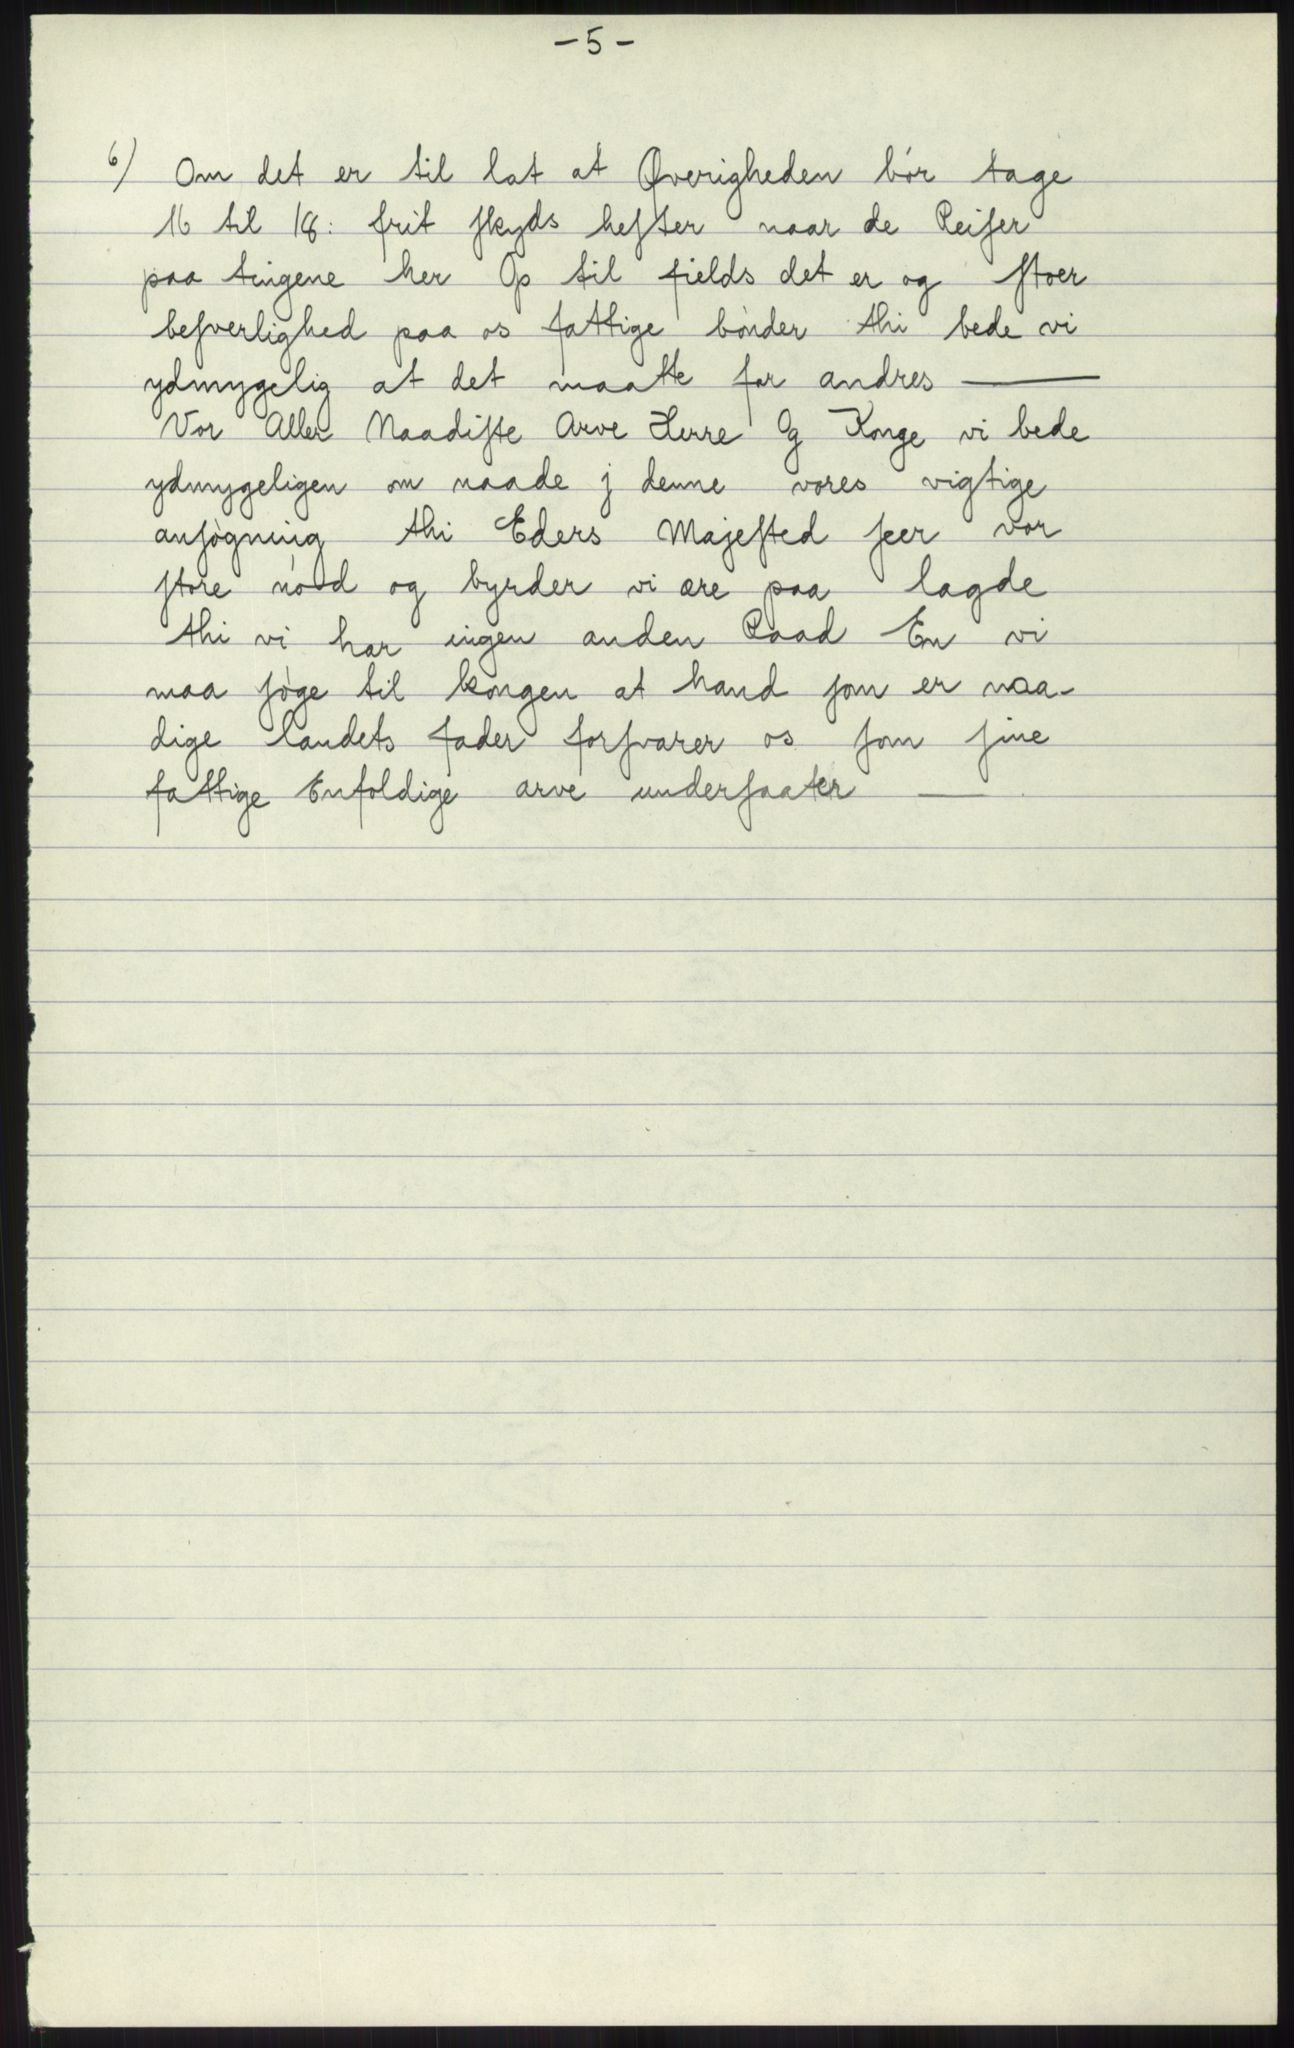 - 5 -
6) Om det er til lat at Øverigheden bór tage
16 til 18: frit ſkyds heſter naar de Reiſer
paa tingene her Op til fields det er og ſtoer
beſverlighed paa os fattige bónder thi bede vi
ydmygelig at det maatte for andres —
Vor Aller Naadiſte Arve Herre Og Konge vi bede
ydmygeligen om naade j denne vores vigtige
anſógning thi Eders Majeſted ſeer vor
ſtore nód og byrder vi ære paa lagde
thi vi har ingen anden Raad En vi
maa ſóge til kongen at hand ſom er naa-
dige landets fader forſvarer os ſom ſine
fattige Enfoldige arve underſaater —